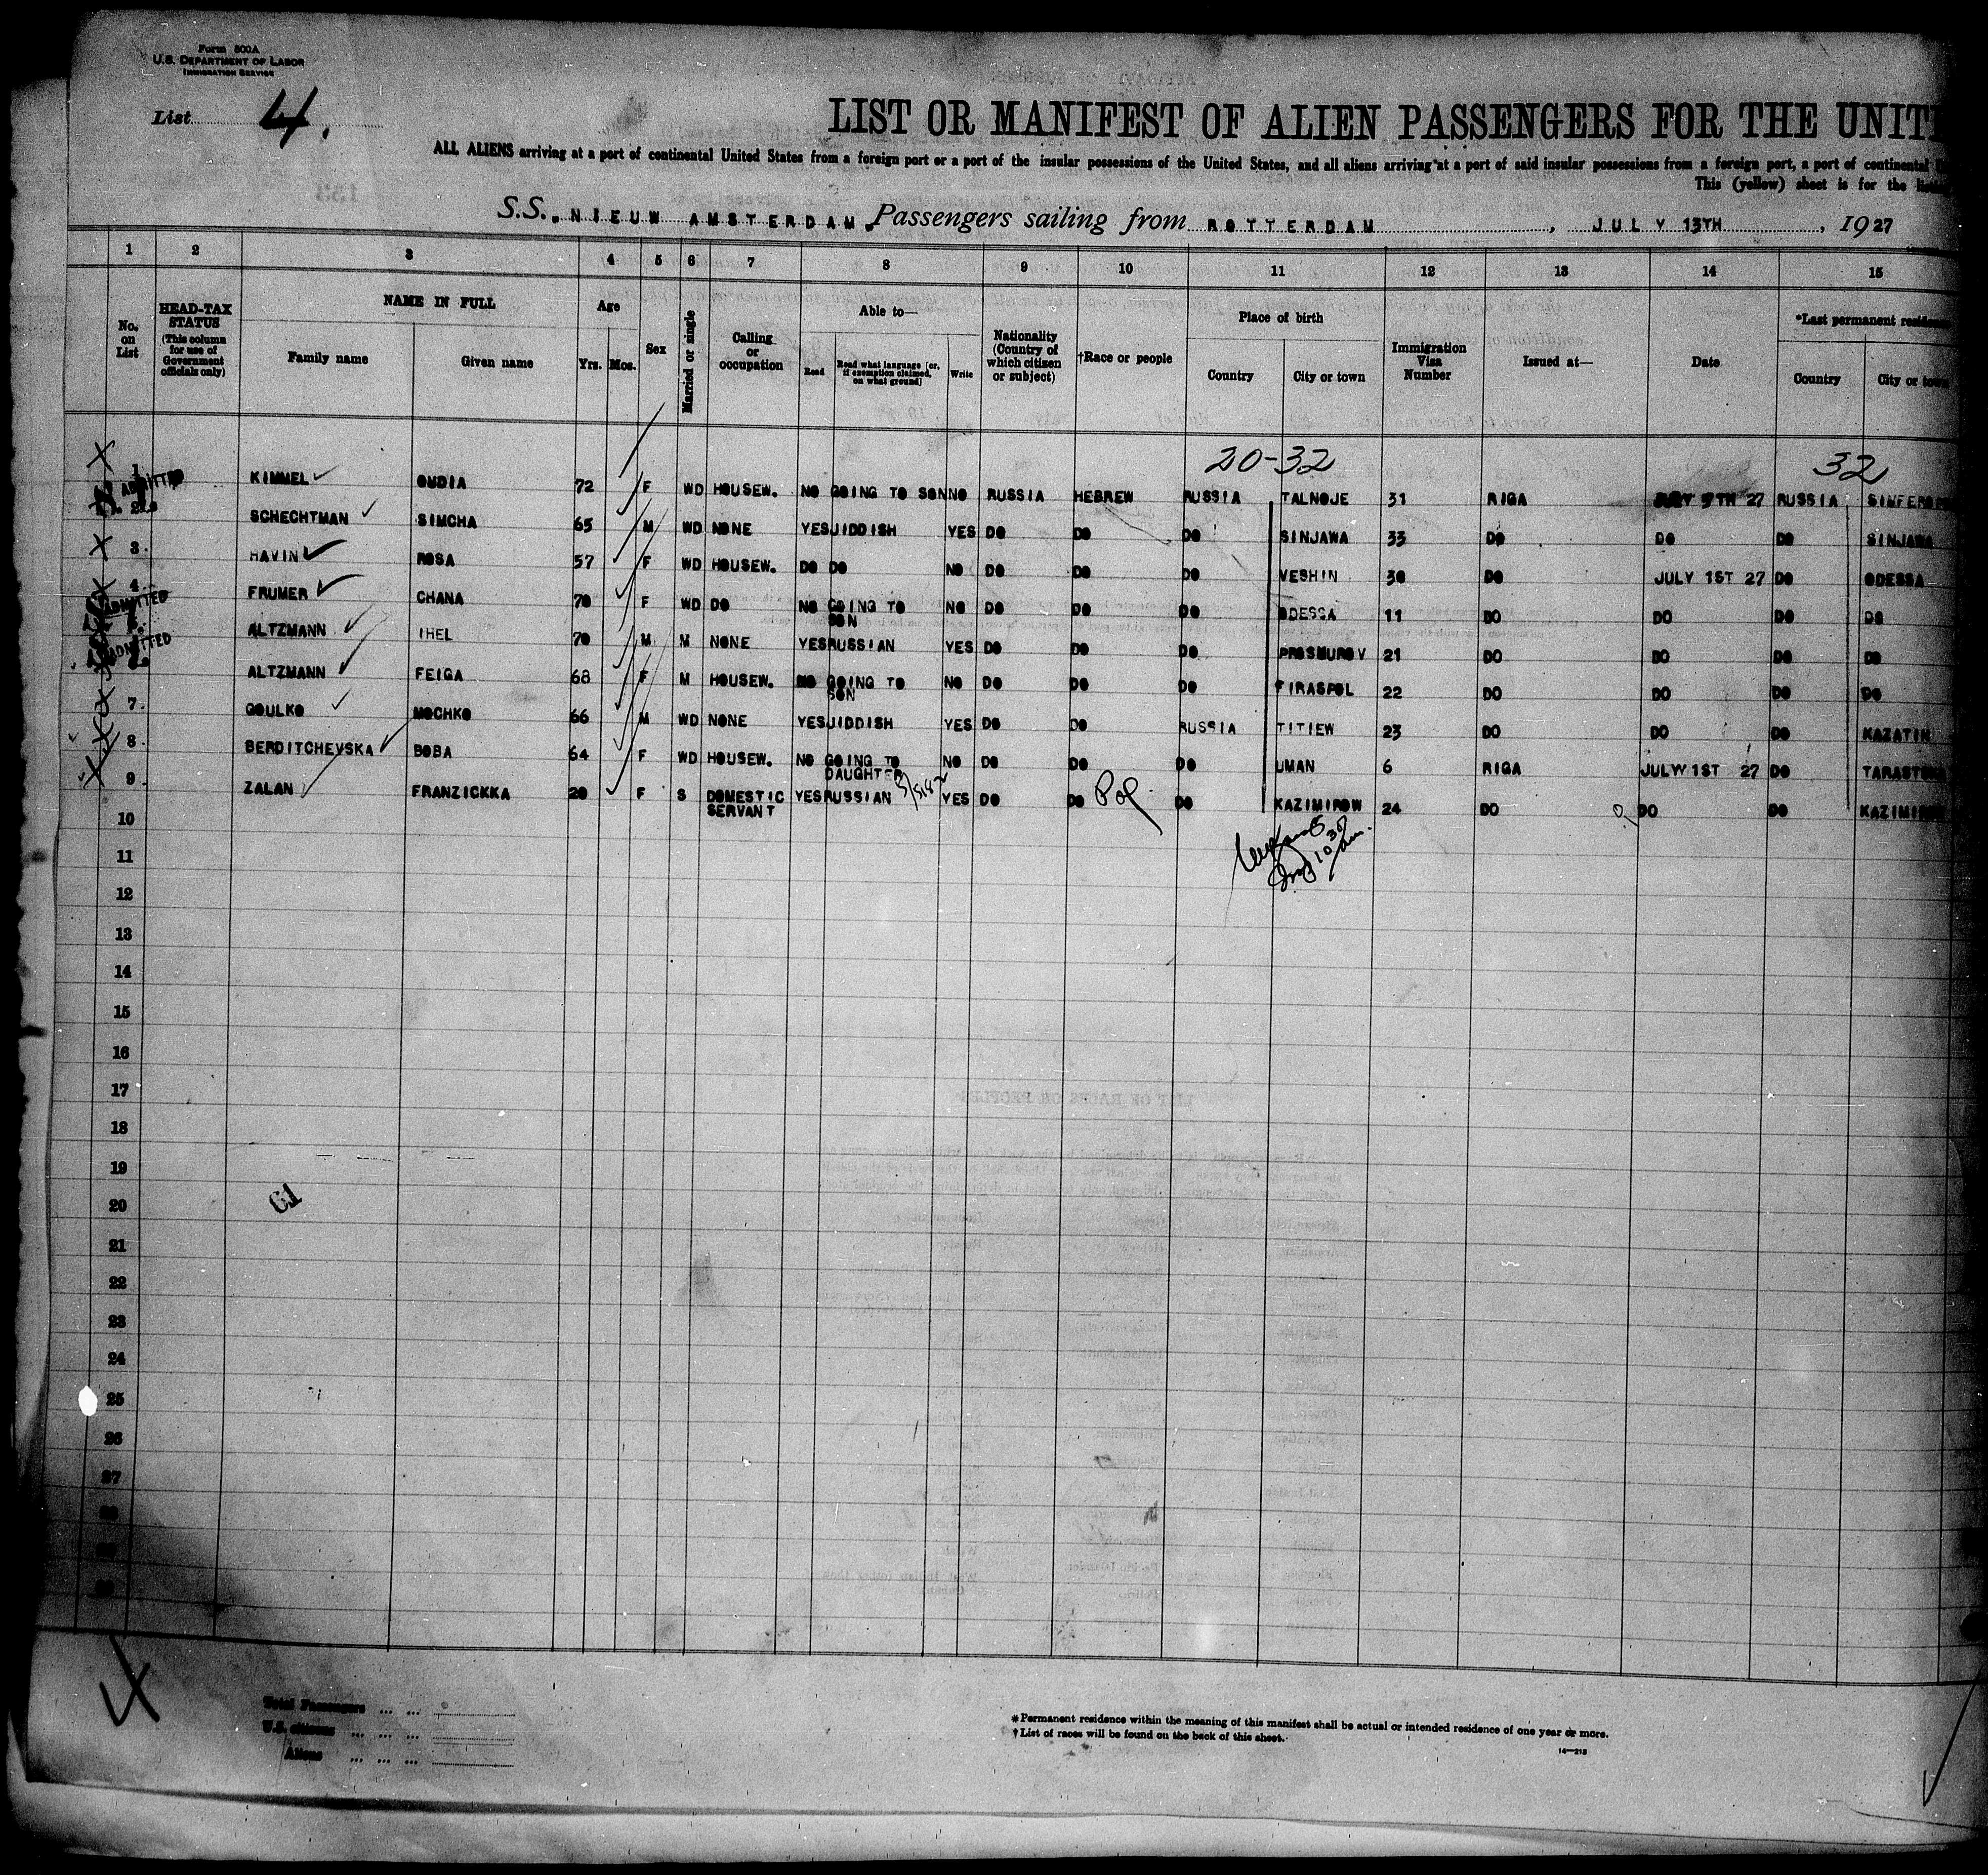 Form 500A
U.S. DEPARTMENT OF LABOR
IMMIGRATION SERVICE
List 4.
LIST OR MANIFEST OF ALIEN PASSENGERS FOR THE UNIT
ALL ALIENS arriving at a port of continental United States from a foreign port or a port of the insular possessions of the United States, and all aliens arriving at a port of said insular possessions from a foreign port, a port of continental
This (yellow) sheet is for the
S.S. NIEUW AMSTERDAM. Passengers sailing from ROTTERDAM, JULY 13TH, 1927
1 2 3 4 5 6 7 8 9 10 11 12 13 14 15
No. on List
HEAD-TAX STATUS (This column for use of Government officials only)
NAME IN FULL
Family name Given name
Age
Yrs. Mos.
Sex
Married or single
Calling or occupation
Able to—
Read Read what language [or, if exemption claimed, on what ground] Write
Nationality (Country of which citizen or subject)
†Race or people
Place of birth
Country City or town
Immigration Visa Number
Issued at—
Date
*Last permanent residence
Country City or town
20-32 32
ADMITTED
1 KIMMEL 72 F WD HOUSEW. NO GOING TO SON NO RUSSIA HEBREW RUSSIA TALNOJE 31 RIGA 27 RUSSIA
2 SCHECHTMAN SIMCHA 65 M WD NONE YES JIDDISH YES DO DO DO SINJAWA 33 DO DO DO SINJAWA
3 HAVIN ROSA 57 F WD HOUSEW. DO DO NO DO DO DO VESHIN 30 DO JULY 1ST 27 DO ODESSA
4 FRUMER CHANA 70 F WD DO NO GOING TO SON NO DO DO DO ODESSA 11 DO DO DO DO
ADMITTED
ALTZMANN IHEL 70 M M NONE YES RUSSIAN YES DO DO DO PROSKUROV 21 DO DO DO DO
ADMITTED
ALTZMANN FEIGA 68 F M HOUSEW. NO GOING TO SON NO DO DO DO TIRASPOL 22 DO DO DO DO
7 GOULKO MOCHKO 66 M WD NONE YES JIDDISH YES DO DO RUSSIA TITIEW 23 DO DO DO KAZATIN
8 BERDITCHEVSKA BOBA 64 F WD HOUSEW. NO GOING TO DAUGHTER NO DO DO DO UMAN 6 RIGA JULY 1ST 27 DO
9 ZALAN FRANZICKKA 20 F S DOMESTIC SERVANT YES RUSSIAN YES DO DO Pol DO KAZIMIROW 24 DO DO DO
10
11
12
13
14
15
16
17
18
19
20
61
21
22
23
24
25
26
27
Total Passengers
U.S. citizens
Aliens
*Permanent residence within the meaning of this manifest shall be actual or intended residence of one year or more.
†List of races will be found on the back of this sheet.
14—213